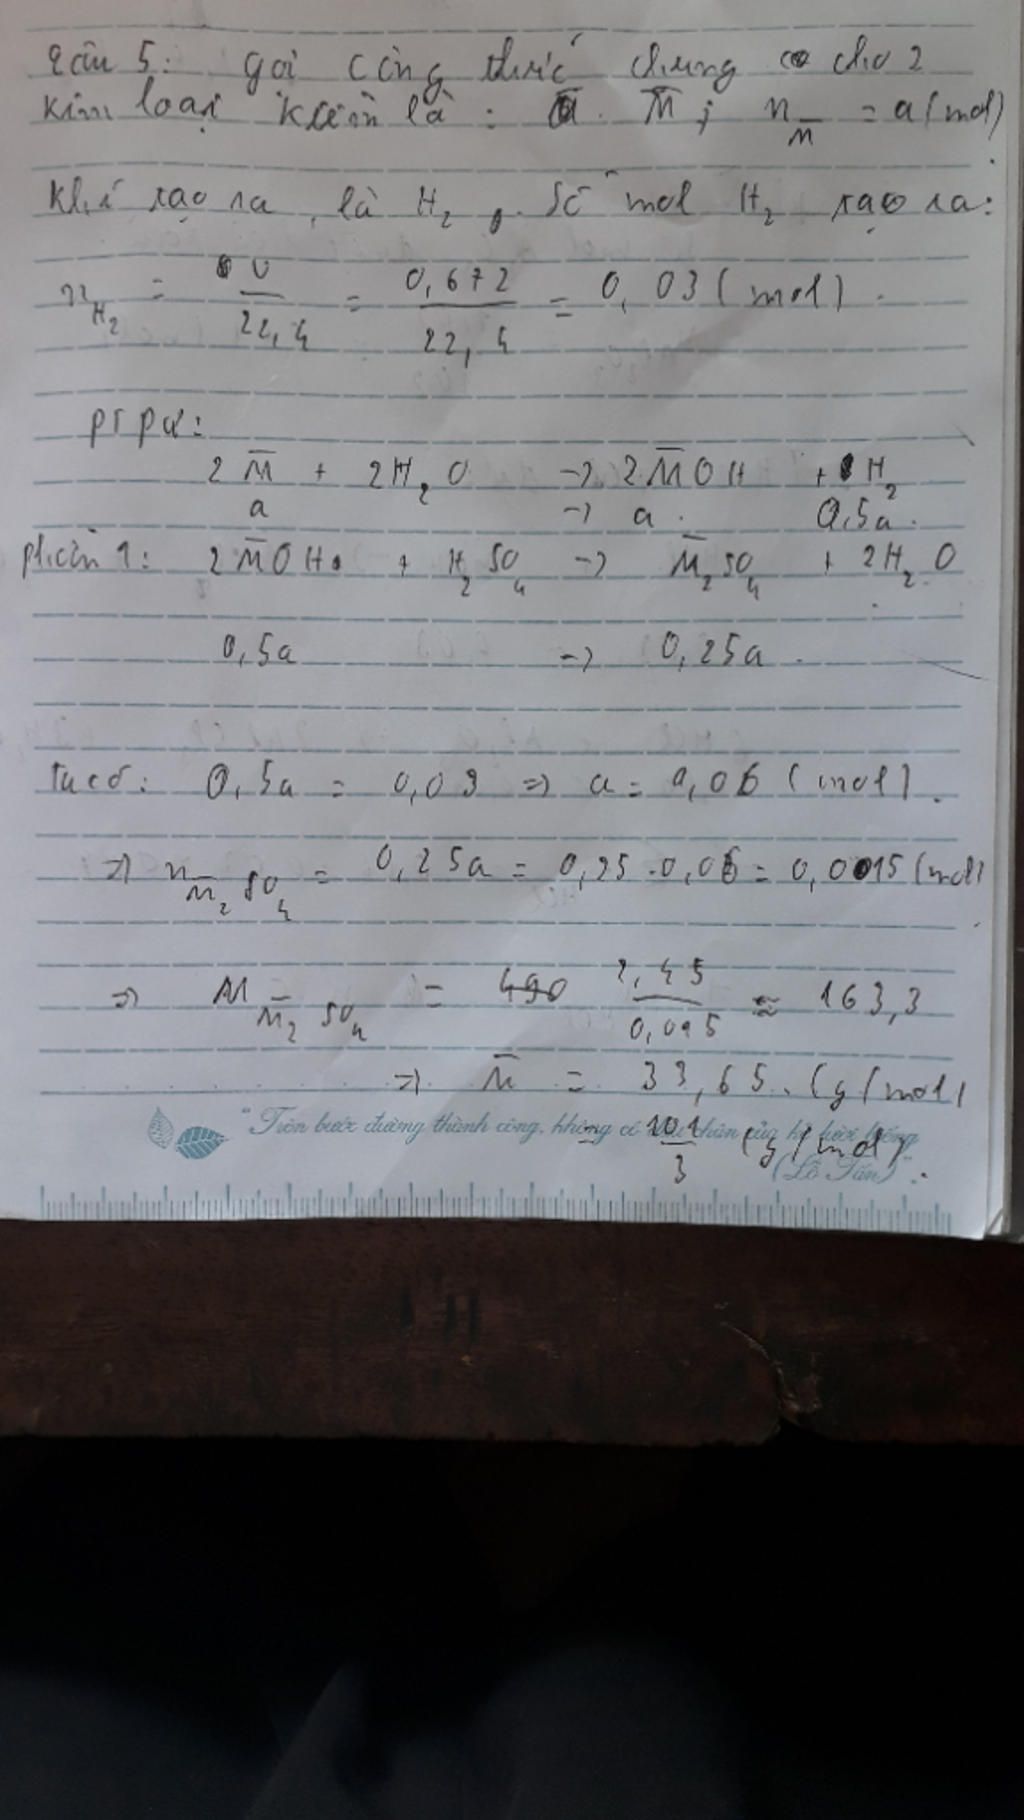 Câu 5: gọi công thức chung cho 2
kim loại kiềm là: M̅; n M̅ = a (mol)
Khí tạo ra là H₂. Số mol H₂ tạo ra:
n H₂ = V/22,4 = 0,672/22,4 = 0,03 (mol).
ptpư:
2M̅ + 2H₂O -> 2M̅OH + H₂
a -> a. 0,5a.
phần 1: 2M̅OH + H₂SO₄ -> M̅₂SO₄ + 2H₂O
0,5a -> 0,25a.
Ta có: 0,5a = 0,03 => a = 0,06 (mol).
=> n M̅₂SO₄ = 0,25a = 0,25.0,06 = 0,0015 (mol)
=> M M̅₂SO₄ = 490 2,45/0,015 ≈ 163,3
=> M̅ = 33,65. (g/mol)
= 101/3 (g/mol).
"Trên bước đường thành công, không có của kẻ lười biếng
(Lỗ Tấn)".